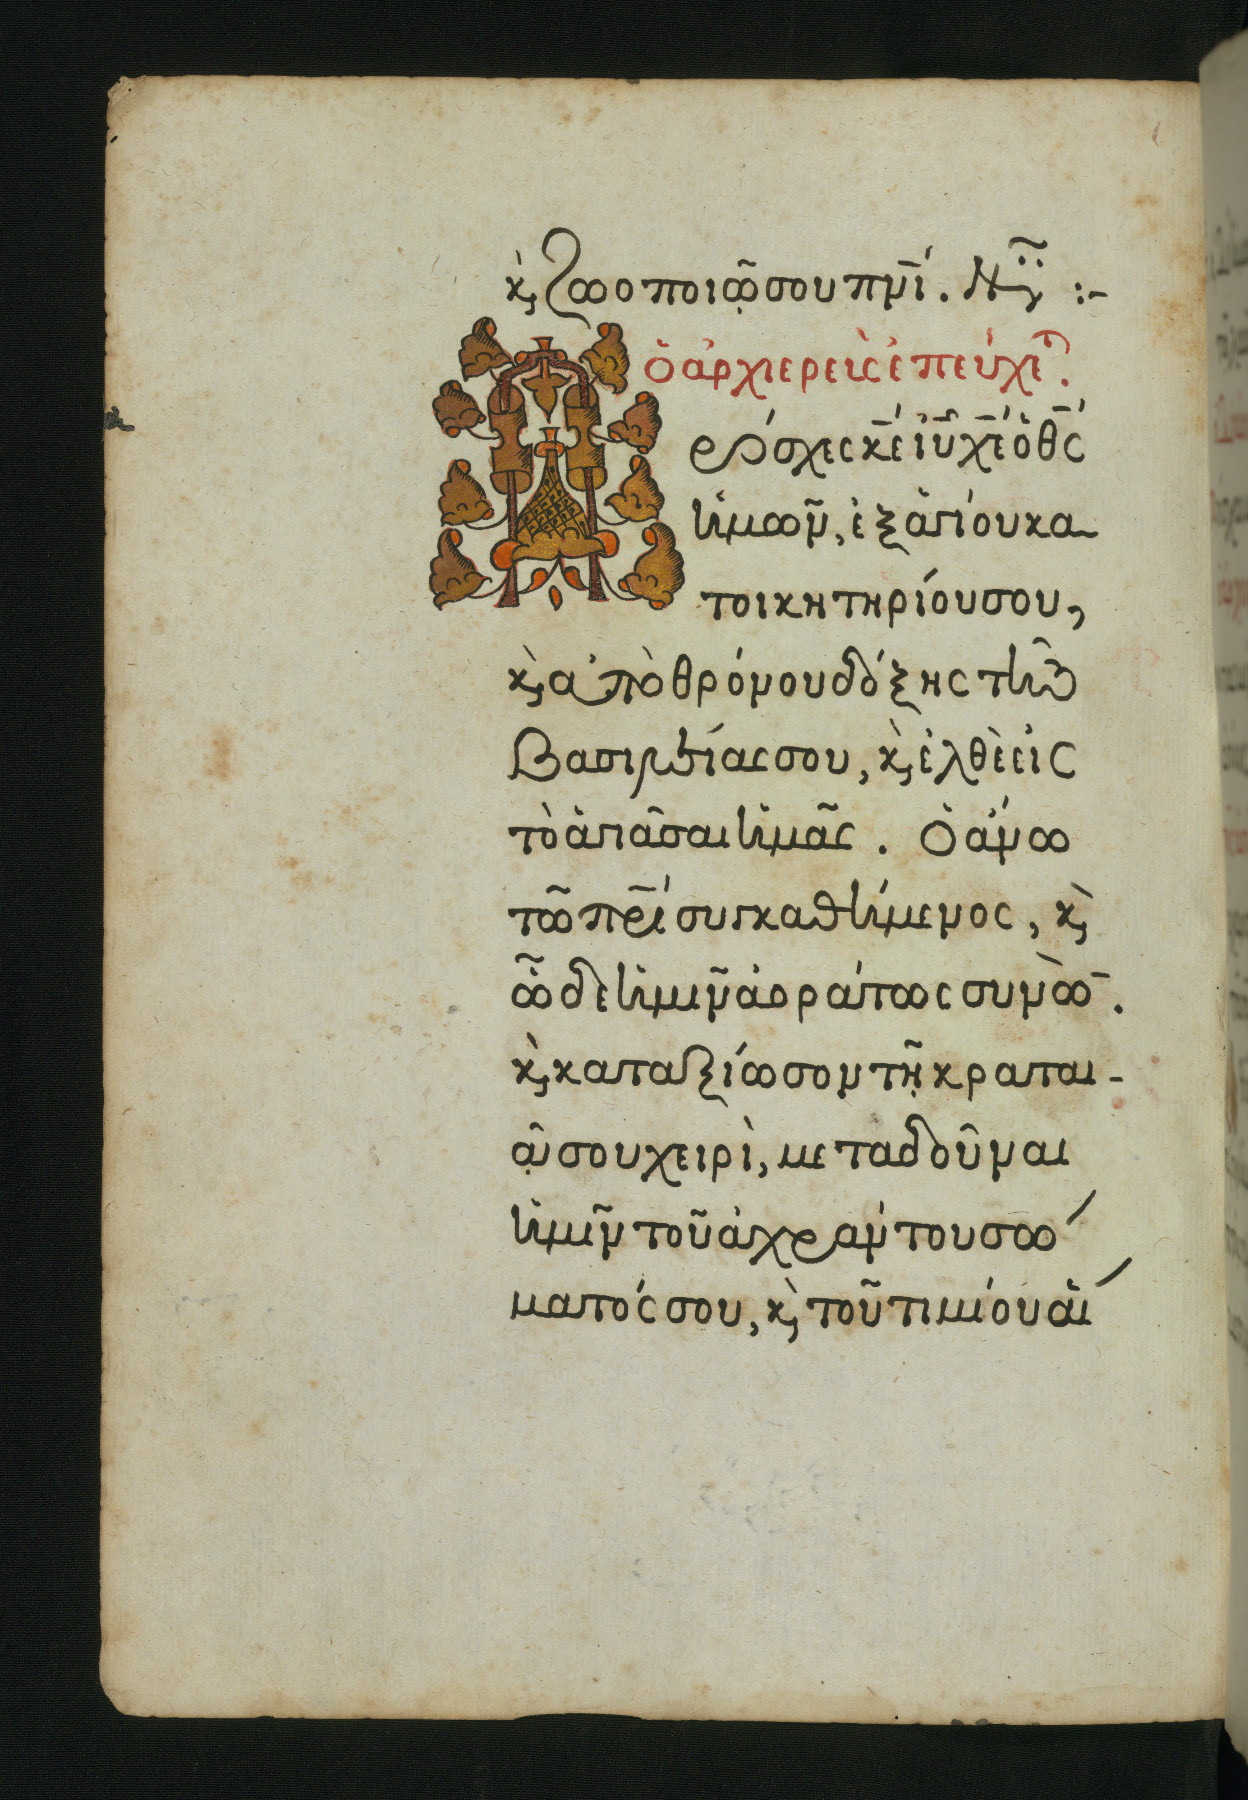 κ, ζωοποιῷ σου πνι. Νυ :-
ὁ ἀρχιερεὺς ἐπεύχε.
Πρόσχες κε ιυ χε ὁ θς
ἡμῶν, ἐξ ἁγίου κα
τοικητηρίου σου,
κ, ἀπὸ θρόνου δόξης τῆς
βασιλείας σου, κ, ἐλθὲ εἰς
τὸ ἁγιᾶσαι ἡμᾶς. Ὁ ἄνω
τῶ πρι συγκαθήμενος, κ,
ὧδε ἡμῖν ἀοράτως συνὼν.
κ, καταξίωσον τῇ κραται-
ᾷ σου χειρὶ, μεταδοῦναι
ἡμῖν τοῦ ἀχράντου σώ
ματός σου, κ, τοῦ τιμίου αἵ